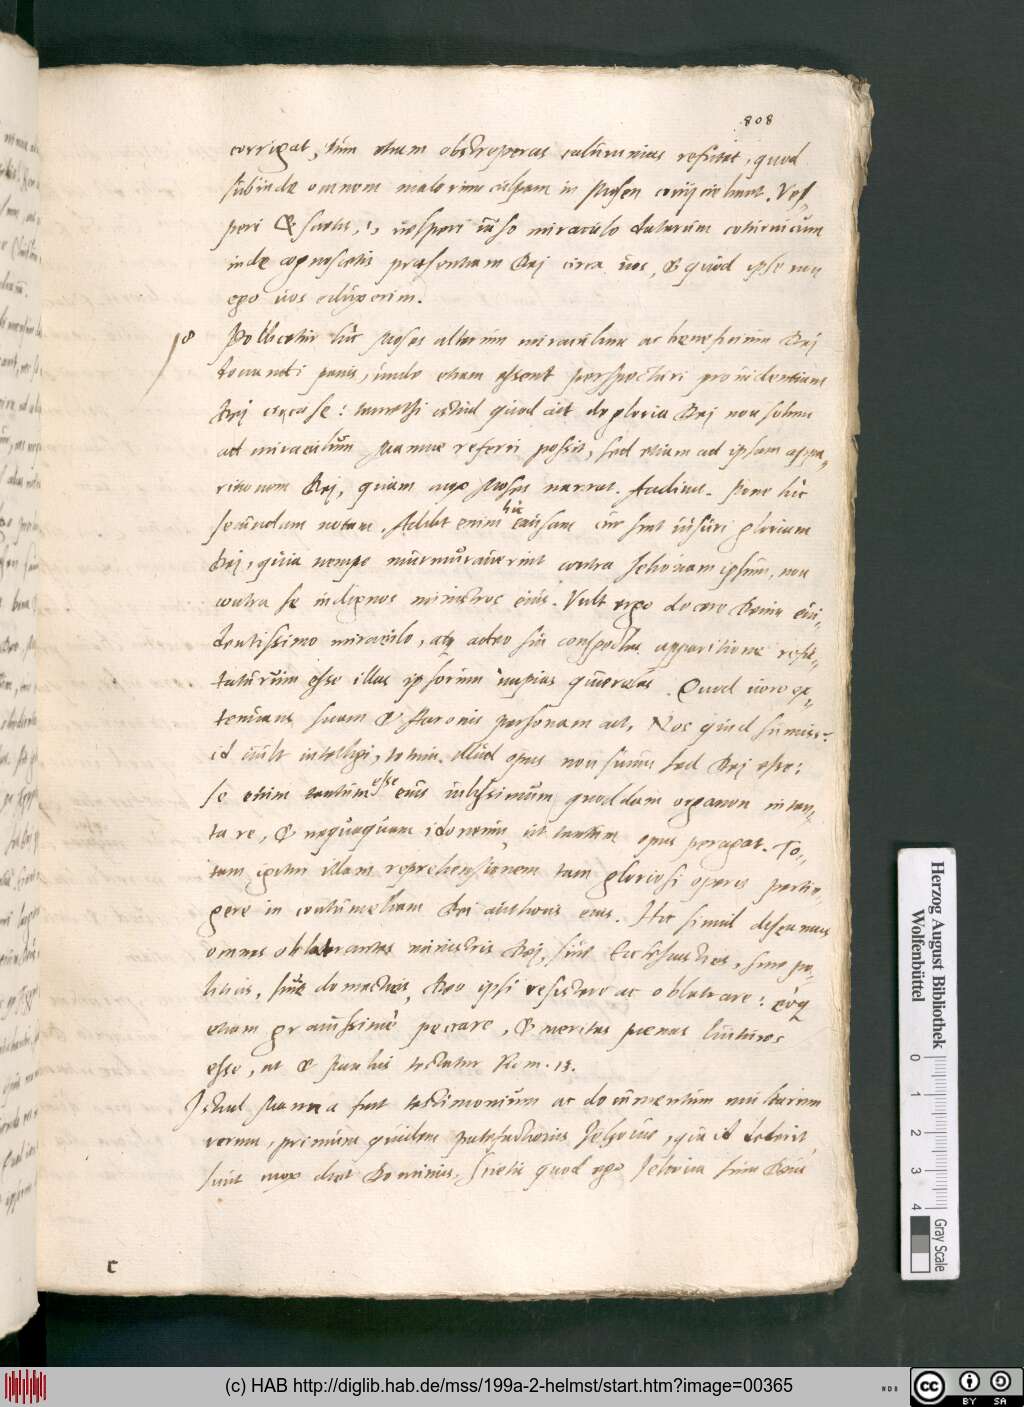 808
corrigat, tum etiam obstreperas calumnias refutat, quod
subinde omnem malorum culpam in Mosen coniiciebant. Ves-
peri & scietis, i, vesperi viso miraculo datarum coturnicum
inde cognoscetis praesentiam Dei circa vos, & quod ipse non
ego vos eduxerim.
8 Pollicetur hic Moses alterum miraculum ac beneficium Dei
panis, unde etiam essent perspecturi providentiam
Dei erga se: tametsi istud quod ait de gloria Dei non solum
ad miraculum Mannae referri possit, sed etiam ad ipsam appa-
ritionem Dei, quam mox Moses narrat. Audivit. Pone hic
secundam notam. Addit enim hic causam cur sint visuri gloriam
Dei, quia nempe murmuraverint contra Iehovam ipsum, non
contra se indignos ministros eius. Vult ergo docere Deum evi-
dentissimo miraculo, atque adeo sui conspectus apparitione refu-
taturum esse illas ipsorum impias querelas. Quod vero ex-
tenuans suam & Aaronis personam ait, Nos quid sumus?
id vult intelligi, totum illud opus non suum sed Dei esse:
se enim tantum esse eius vilissimum quoddam organon
& nequaquam idoneum, ut tantum opus peragat. To-
tam igitur illam reprehensionem tam gloriosi operis
in contumeliam Dei authoris eius. Hic simul discamus
omnes oblatrantes ministris Dei, sive Ecclesiasticis, sive po-
liticis, sive domesticis, Deo ipsi resistere ac oblatrare:
etiam gravissimè peccare, & meritas poenas luituros
esse, ut & Paulus testatur Rom. 13.
Istud Manna fuit testimonium ac documentum multarum
rerum, primum quidem patefactionis Iehovae, qui id dederit,
sicut mox dicet Dominus, Scietis quod ego Iehova sum Deus
c
Herzog August Bibliothek
Wolfenbüttel
0 1 2 3 4
Gray Scale
(c) HAB http://diglib.hab.de/mss/199a-2-helmst/start.htm?image=00365
cc BY SA